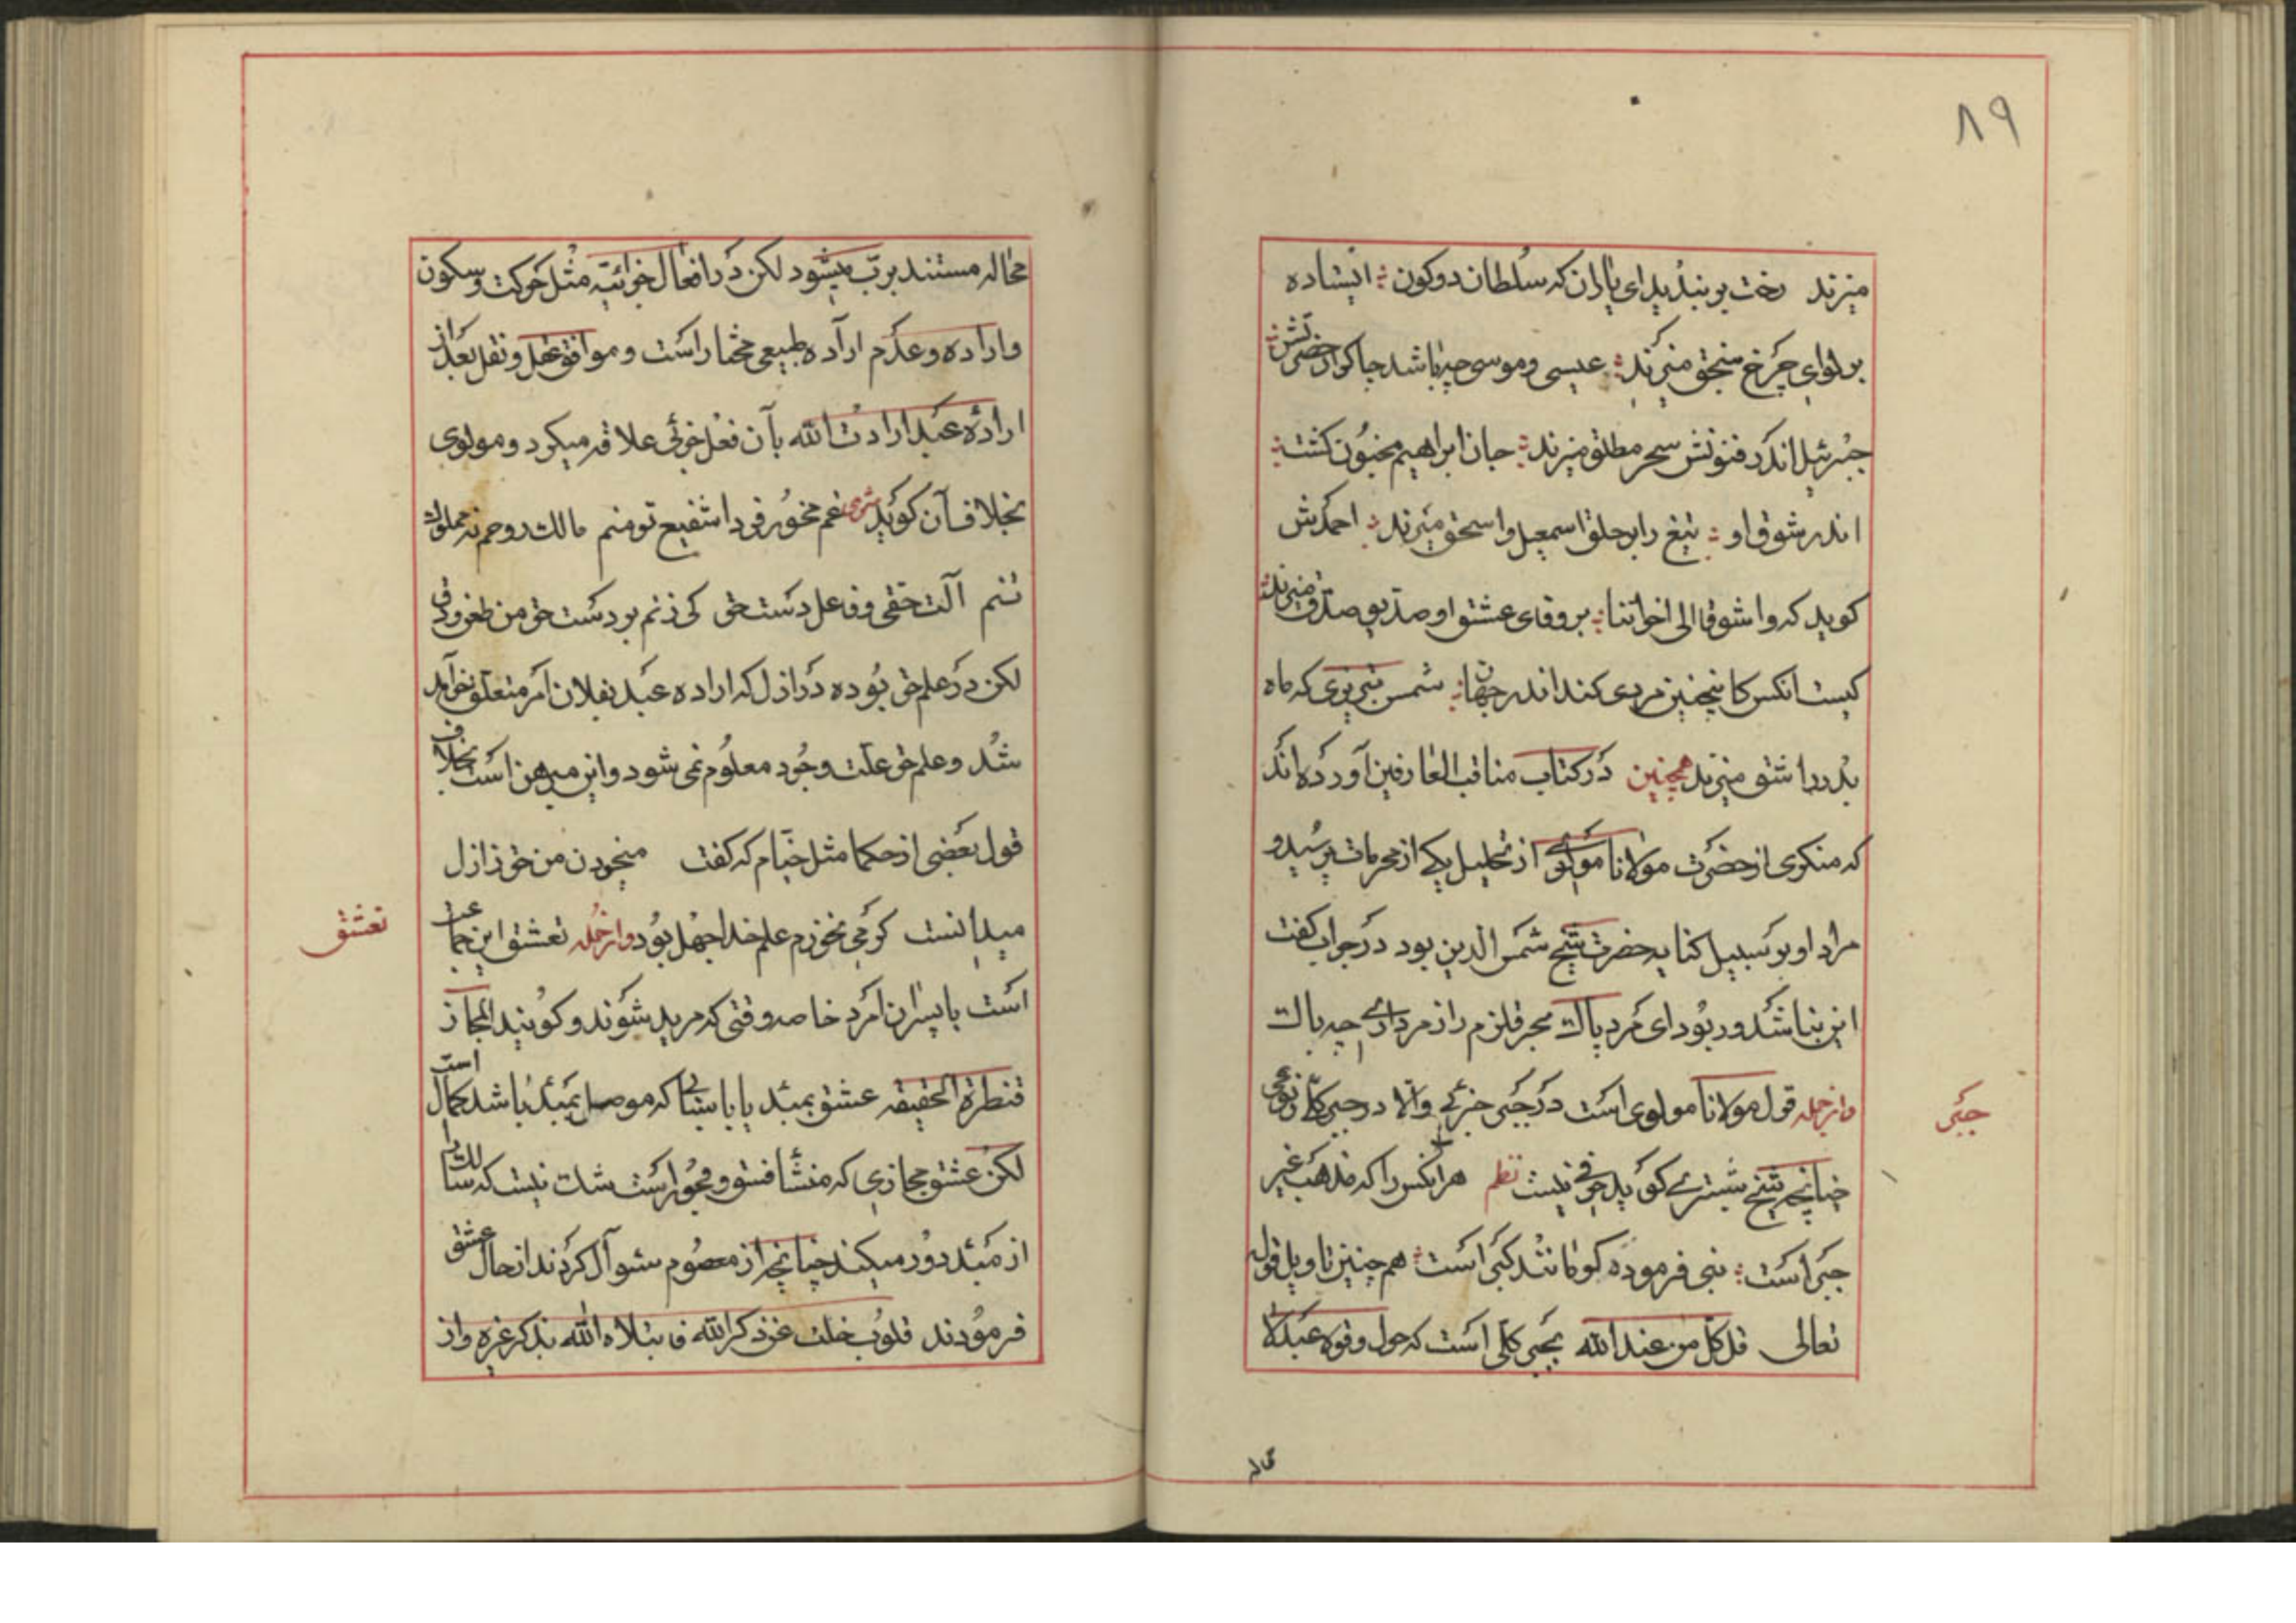 ۸۹
میزند رخت بربندید ای یاران که سلطان دو کون ؞ ایستاده
بر لوای چرخ سنجق میزند ؞ عیسی و موسی چه باشد چاکر از حضرتش ؞
جبرئیل اندر فنونش سحر مطلق میزند ؞ جان ابراهیم مجنون گشت ؞
اندر شوق او ؞ تیغ را بر حلق اسمعیل و اسحق میزند ؞ احمدش
کوید که واشوقا الی اخواننا ؞ بر وفای عشق او صدیق صدق میزند ؞
کیست انکس کاینچنین مردی کند اندر جهان ؞ شمس تبریزی که ماه
بدر را شق میزند همچنین در کتاب مناقب العارفین آورده اند
که منکری از حضرت مولانا مولوی از تحلیل یکی از محرمات پرسید و
مراد او بر سبیل کنایه حضرت شیخ شمس الدین بود در جواب گفت
این نباشد ور بود ای مرد پاک بحر قلزم را ز مرداری چه باک
وازجمله قول مولانا مولوی است در جبر جزئی والا در جبر کلی نزعی
جبر
چنانچه شیخ شبستری کوید حرفی نیست نظم هر انکس را که مذهب غیر
جبر است ؞ نبی فرموده کو مانند کبر است ؞ هم چنین تاویل قول
تعالی قل کل من عند الله بجبر کلی است که حول و قوه عبد لا
محاله
محاله مستند برب میشود لکن در افعال جزائیه مثل حرکت و سکون
و اراده و عدم اراده طبیعی مختار است و موافق عقل و نقل بعد از
اراده عبد ارادت الله بآن فعل جزئی علاقه میکرد و مولوی
بخلاف آن کوید شری غم مخور فردا شفیع تو منم مالک روحم نه مملوک
تنم آلت حقی و فاعل دست حق کی زنم بر دست حق من طعن و دق
لکن در علم حق بوده در ازل که اراده عبد بفلان امر متعلق خواهد
شد و علم حق علت وجود معلوم نمی شود و این مبرهن است بخلاف
قول بعضی از حکما مثل خیام که گفت میخوردن من حق ز ازل
میدانست کر می نخورم علم خدا جهل بود وازجمله تعشق این جماعت
تعشق
است با پسران امرد خاصه وقتی که مرید شوند و کویند المجاز
قنطرة الحقیقه عشق بمبدء یا باشیائی که موصل بمبدء باشد کمال است
لکن عشق مجازی که منشأ فسق و فجور است شک نیست که سالک را
از مبدء دور میکند چنانچه از معصوم سئوال کردند از حال عشق
فرمودند قلوب خلت عن ذکر الله فابتلاه الله بذکر غیره و از